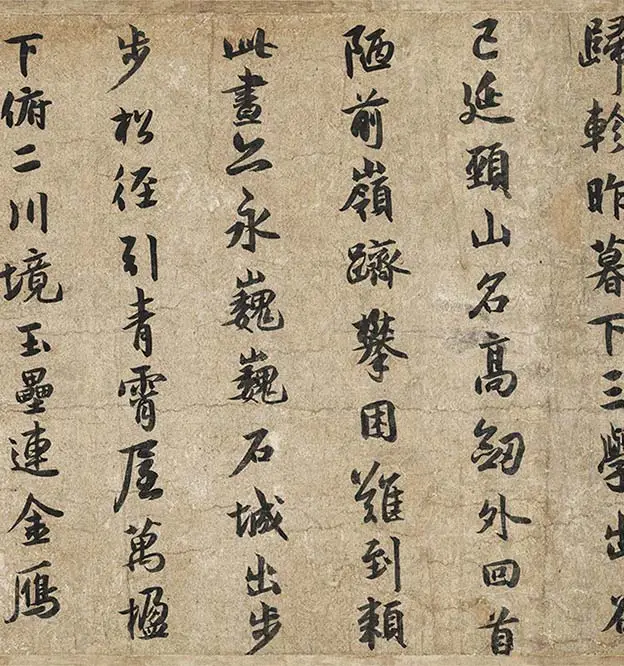 歸軫昨暮下三學出谷
已延頸山名高劔外回首
陋前嶺躋攀困難到頼
此晝亦永巍巍石城出步
步松徑引青霄屋萬楹
下俯二川境玉壘連金鴈